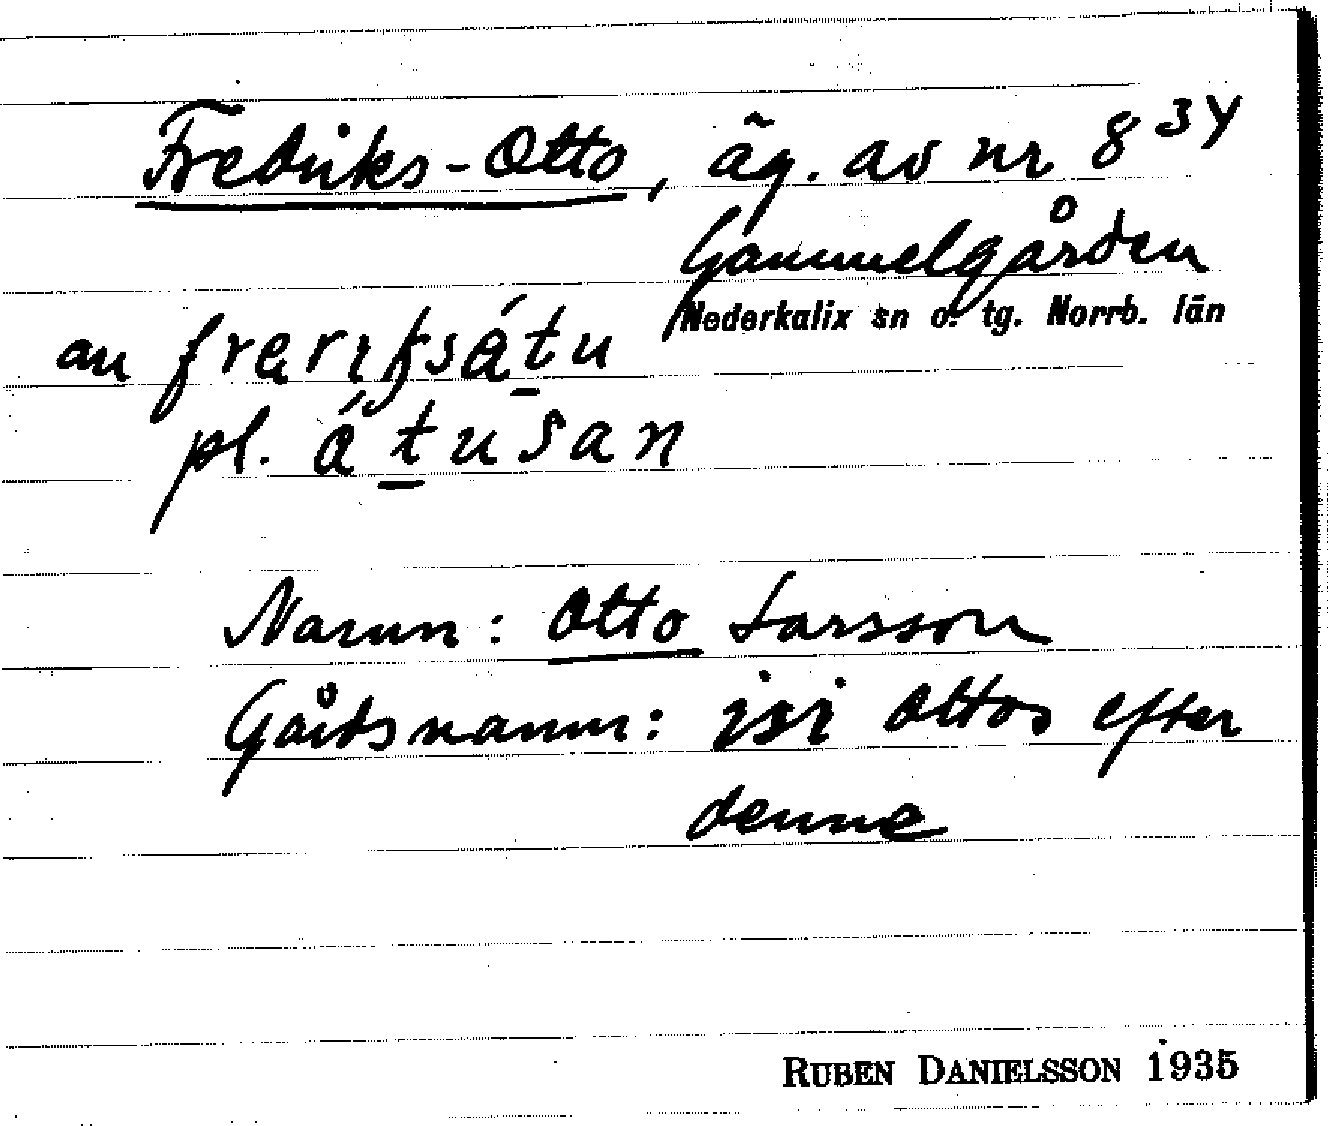 Fredriks-Otto, äg. av nr 8 34
Gammelgården
Nederkalix sn o. tg. Norrb. län
an frerıksátu
pl. átusan
Namn: Otto Larsson
Gårdsnamn: isi Ottos efter
denne
RUBEN DANIELSSON 1935